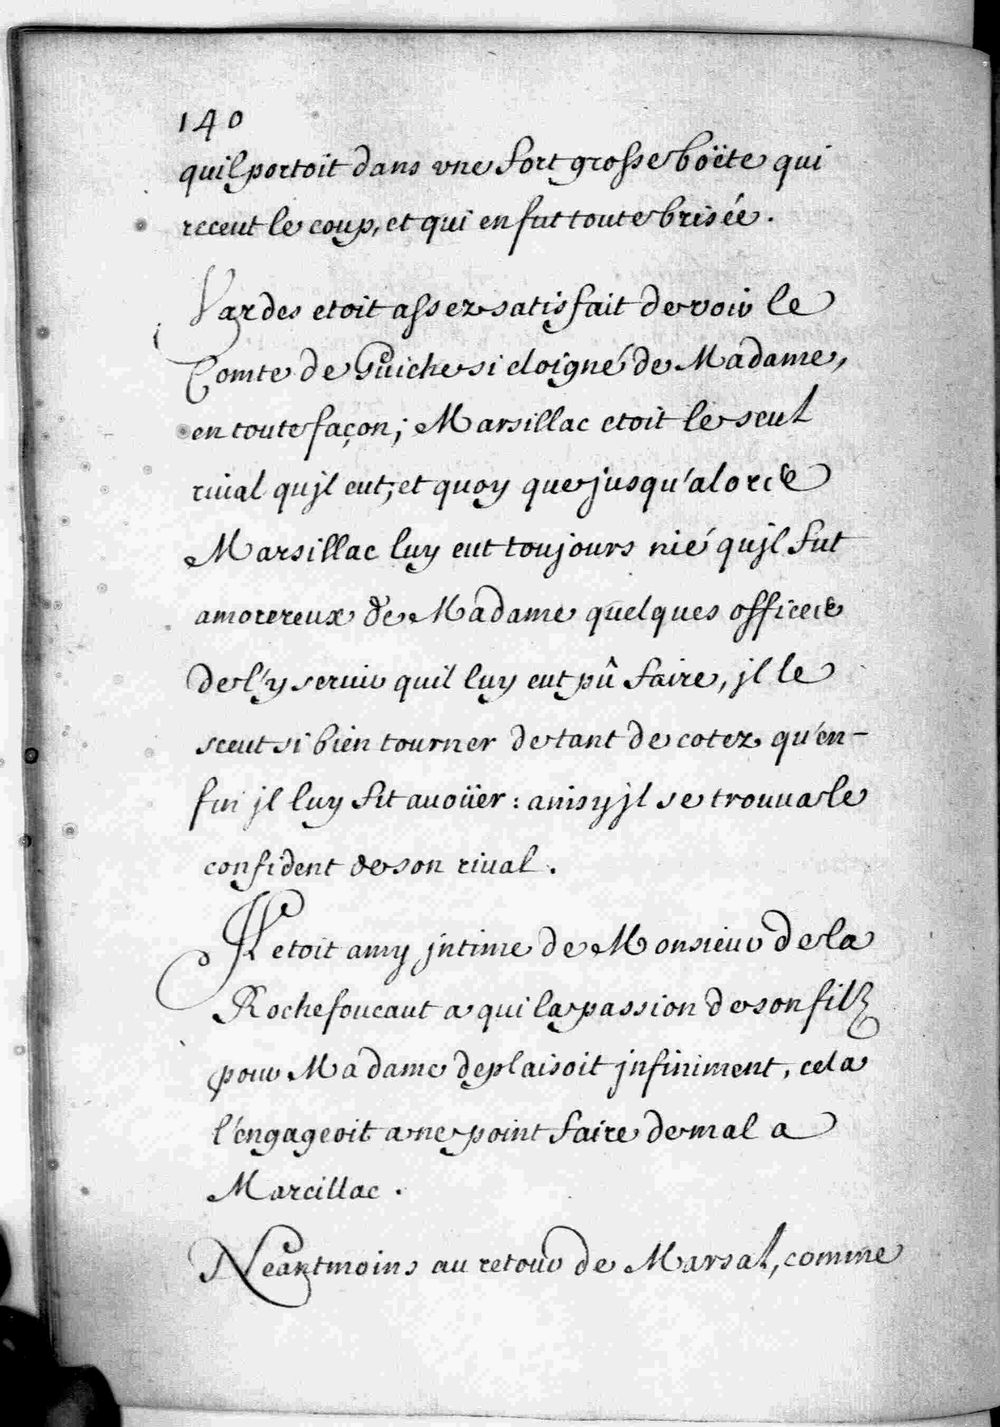 140
quil portoit dans vne fort grosse boëte qui
receut le coup, et qui en fut toute brisée.
Vardes etoit assez satisfait de voir le
Comte de Guiche si eloigné de Madame,
en toute façon; Marsillac etoit le seul
riual qujl eut, et quoy que jusqu'alors
Marsillac luy eut toujours nié qujl fut
amoureux de Madame quelques offices
de l'y seruir quil luy eut pû faire, jl le
sceut si bien tourner de tant de cotez qu'en-
fin jl luy fit auoüer: ainsy jl se trouua le
confident de son riual.
Il etoit amy jntime de Monsieur de la
Rochefoucaut a qui la passion de son filz
pour Madame deplaisoit jnfiniment, cela
l'engageoit a ne point faire de mal a
Marcillac.
Neantmoins au retour de Marsal, comme